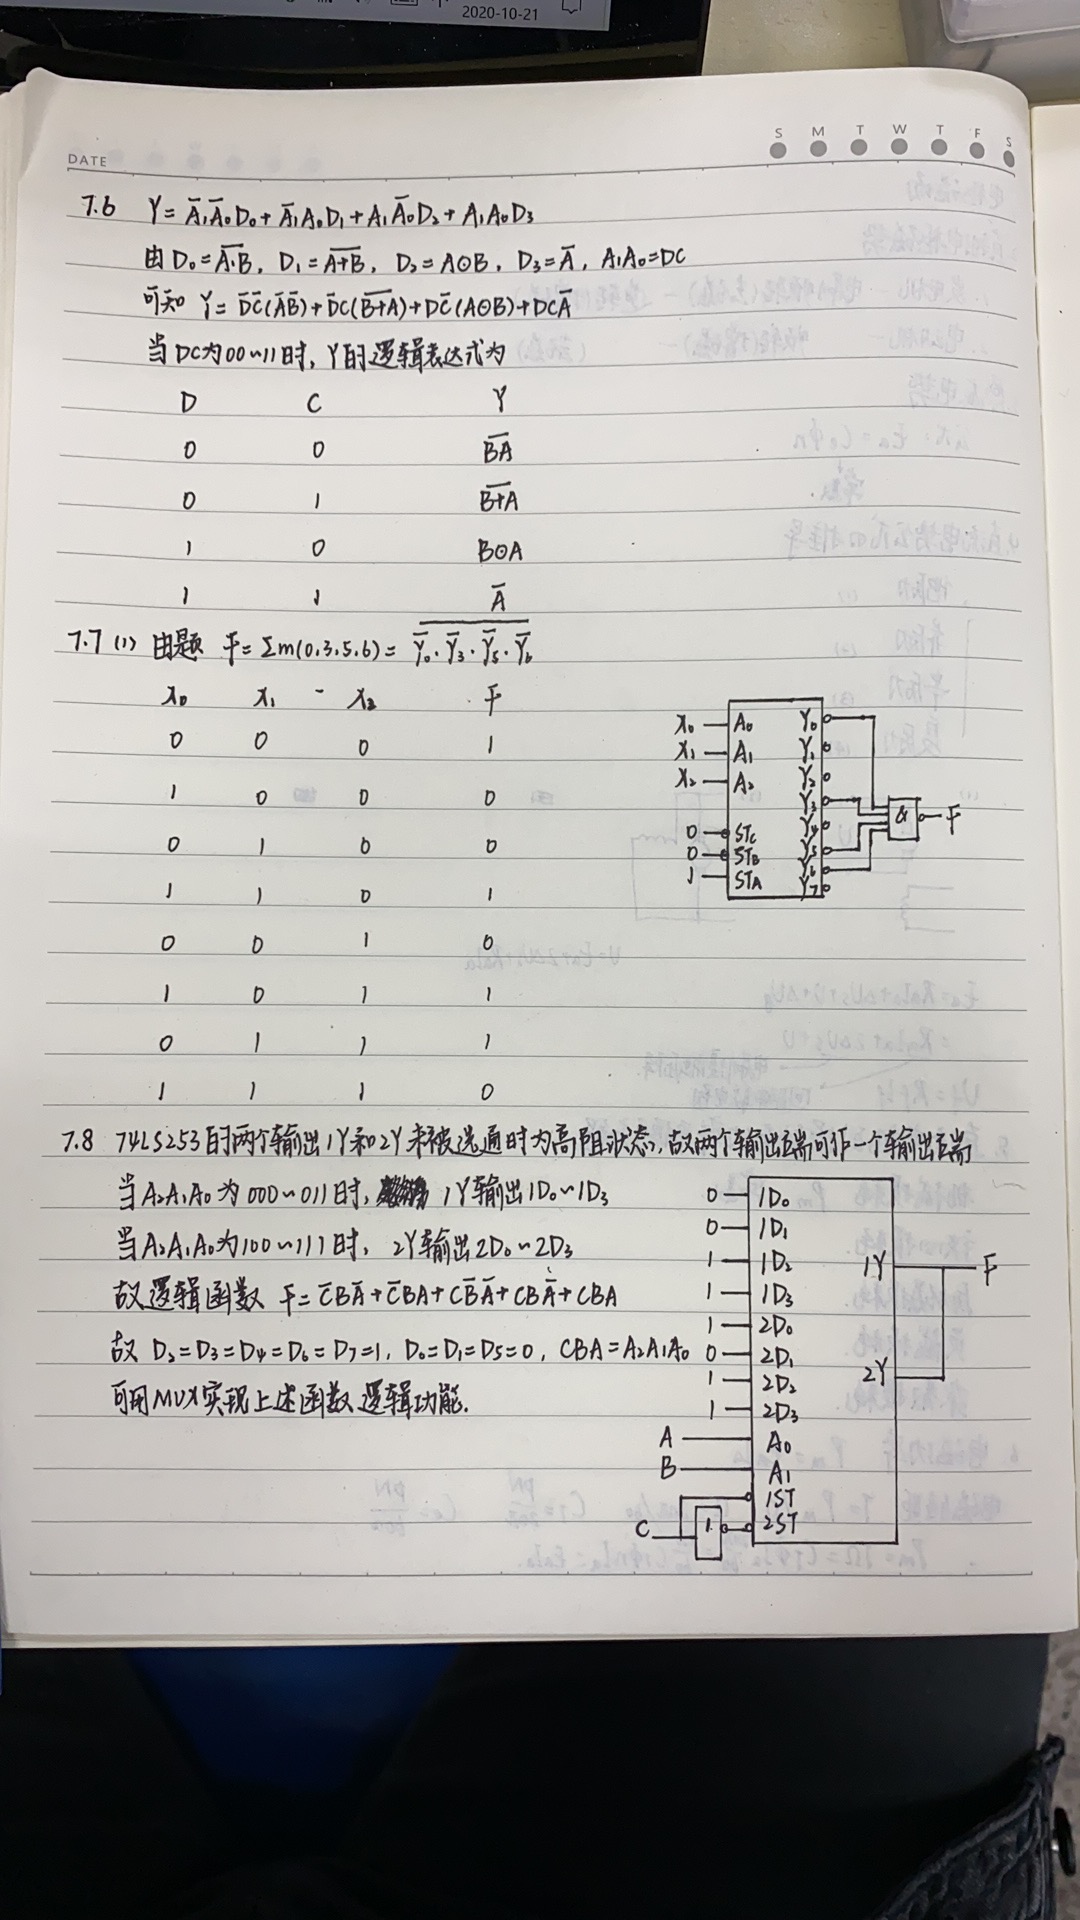 2020-10-21
S M T W T F S
DATE
7.6 Y = A̅₁A̅₀D₀ + A̅₁A₀D₁ + A₁A̅₀D₂ + A₁A₀D₃
由 D₀ = \overline{A·B}, D₁ = \overline{A+B}, D₂ = A⊙B, D₃ = A̅, A₁A₀ = DC
可知 Y = D̅C̅(\overline{AB}) + D̅C(\overline{B+A}) + DC̅(A⊙B) + DCA̅
当DC为00~11时, Y的逻辑表达式为
D C Y
0 0 \overline{BA}
0 1 \overline{B+A}
1 0 B⊙A
1 1 A̅
7.7 (1) 由题 F = Σm(0.3.5.6) = \overline{Y̅₀·Y̅₃·Y̅₅·Y̅₆}
X₀ X₁ X₂ F
0 0 0 1
1 0 0 0
0 1 0 0
1 1 0 1
0 0 1 0
1 0 1 1
0 1 1 1
1 1 1 0
X₀ A₀ Y₀
X₁ A₁ Y₁
X₂ A₂ Y₂
Y₃
& F
Y₄
0 STc
Y₅
0 STB
Y₆
1 STA Y₇
7.8 74LS253的两个输出1Y和2Y未被选通时为高阻状态, 故两个输出端可作一个输出端
当A₂A₁A₀为000~011时, 1Y输出1D₀~1D₃
当A₂A₁A₀为100~111时, 2Y输出2D₀~2D₃
故逻辑函数 F = C̅BA̅ + C̅BA + CB̅A̅ + CBA̅ + CBA
故 D₂=D₃=D₄=D₆=D₇=1, D₀=D₁=D₅=0, CBA=A₂A₁A₀
可用MUX实现上述函数逻辑功能.
0 1D₀
0 1D₁
1 1D₂
1Y F
1 1D₃
1 2D₀
0 2D₁
2Y
1 2D₂
1 2D₃
A A₀
B A₁
1ST
C 1 2ST